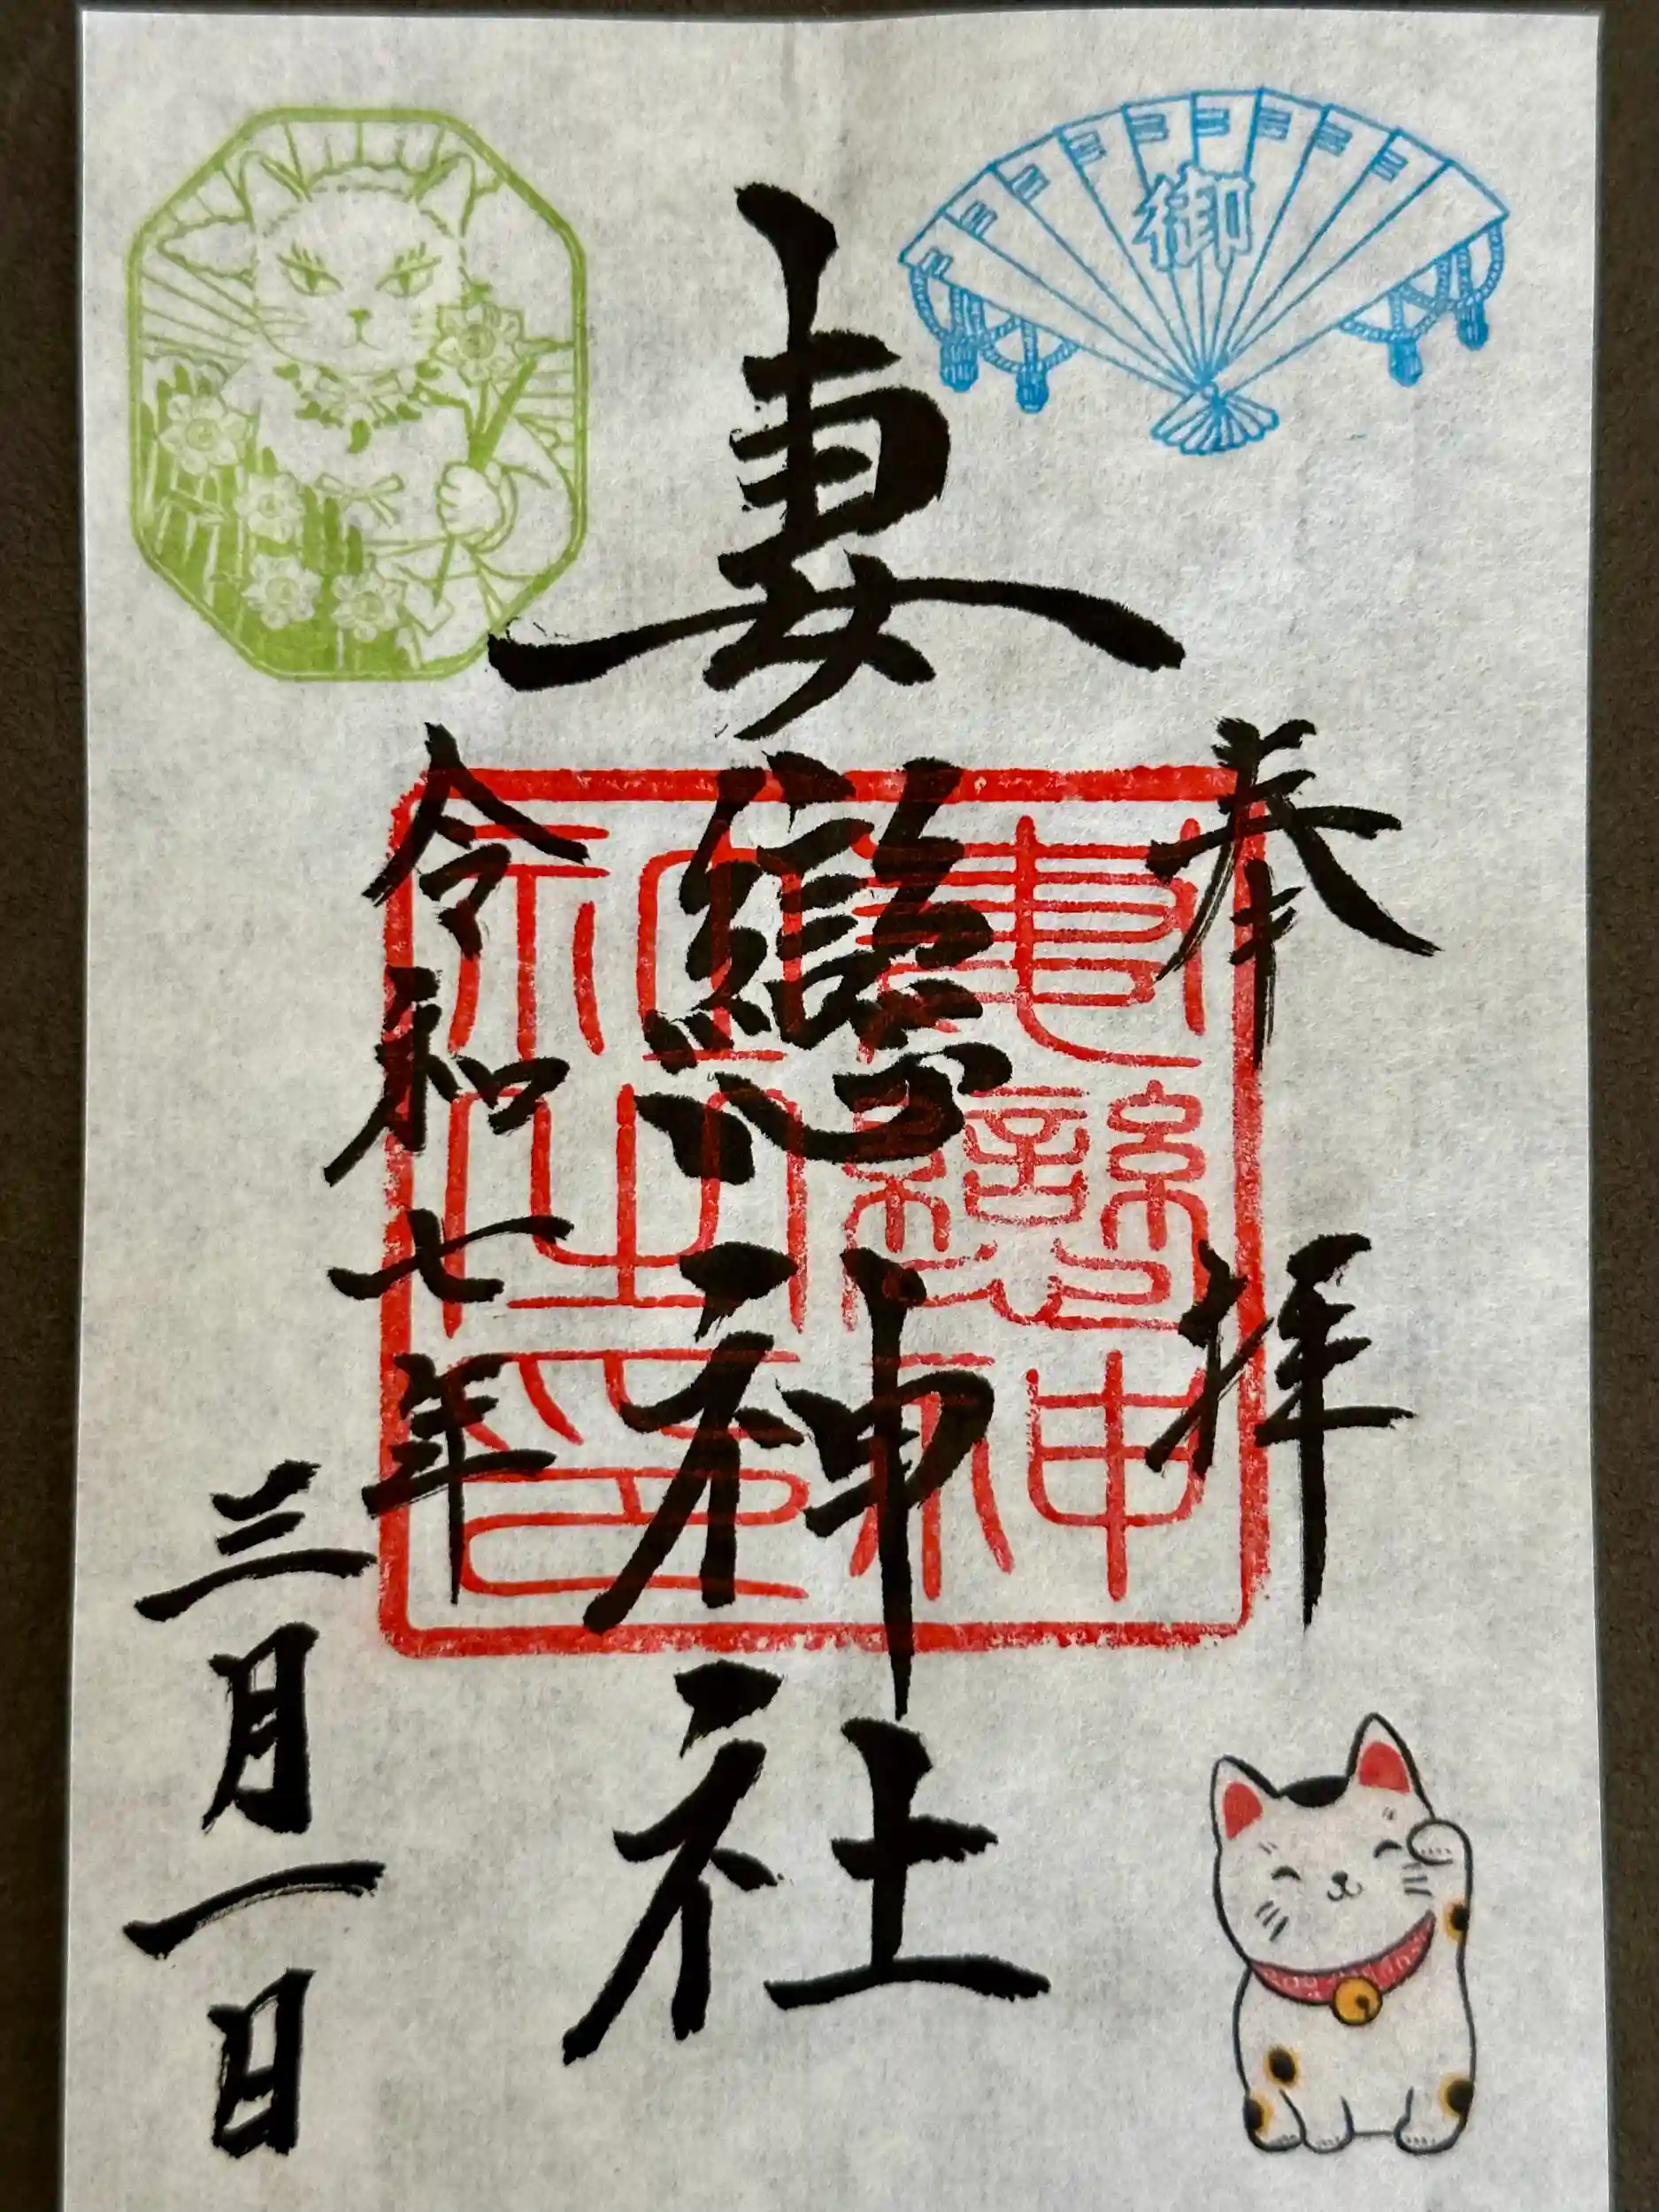 御
奉拝
妻戀神社
妻戀神
社之印
令和七年
三月一日